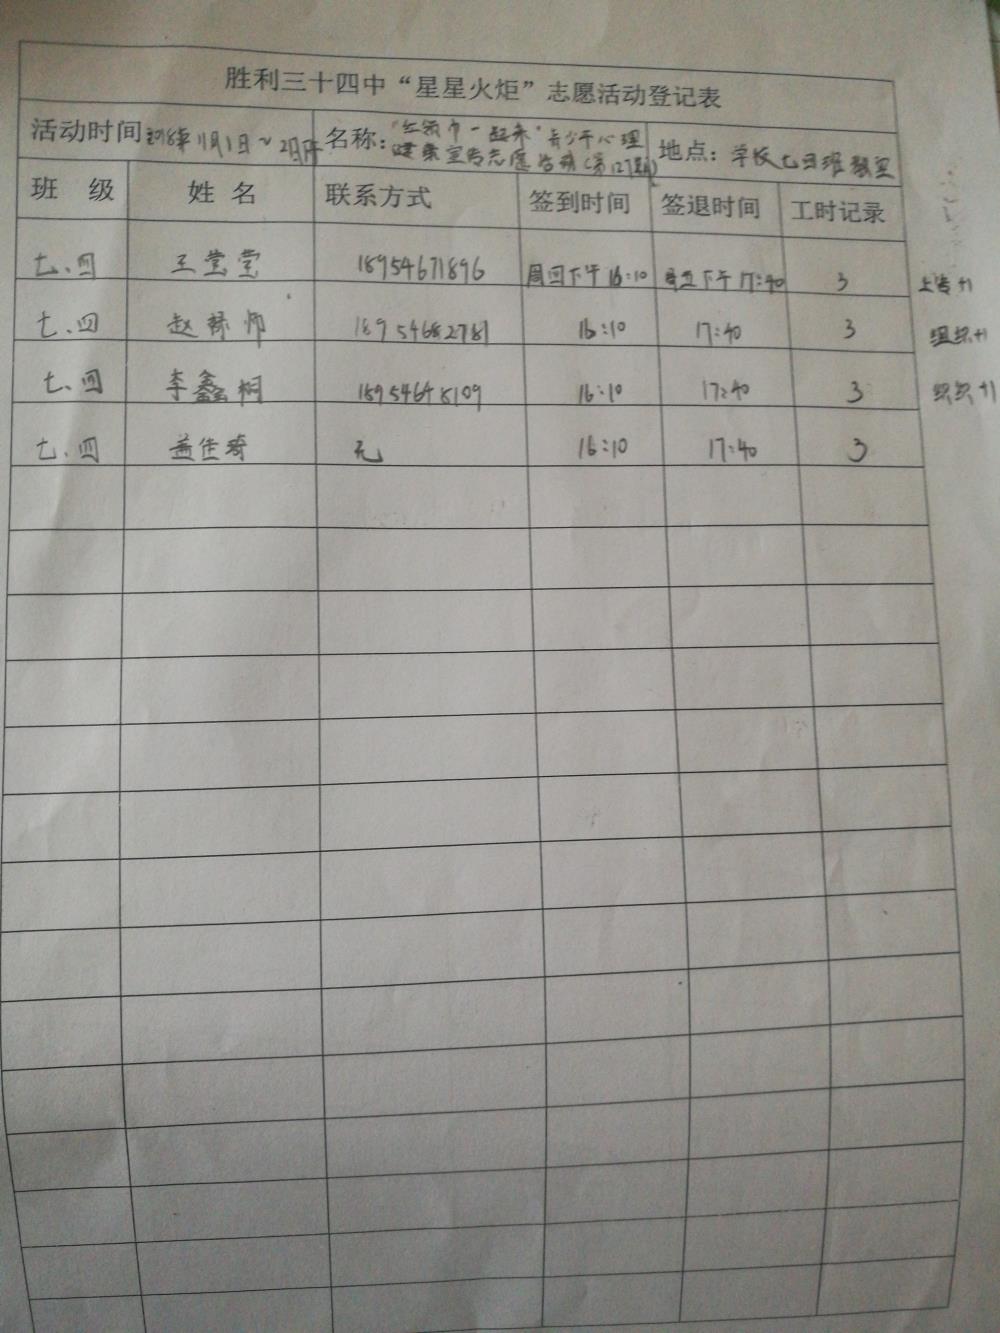 胜利三十四中“星星火炬”志愿活动登记表
活动时间 2018年11月1日~2日下午 名称: “红领巾一起来”青少年心理 地点: 学校七四班教室
健康宣传志愿活动(第127期)
班 级 姓 名 联系方式 签到时间 签退时间 工时记录
七、四 王莹莹 18954671896 周四下午16:10 周五下午17:40 3 上传+1
七、四 赵 师 18954682781 16:10 17:40 3 组织+1
七、四 李鑫桐 18954648109 16:10 17:40 3 组织+1
七、四 盖佳琦 无 16:10 17:40 3